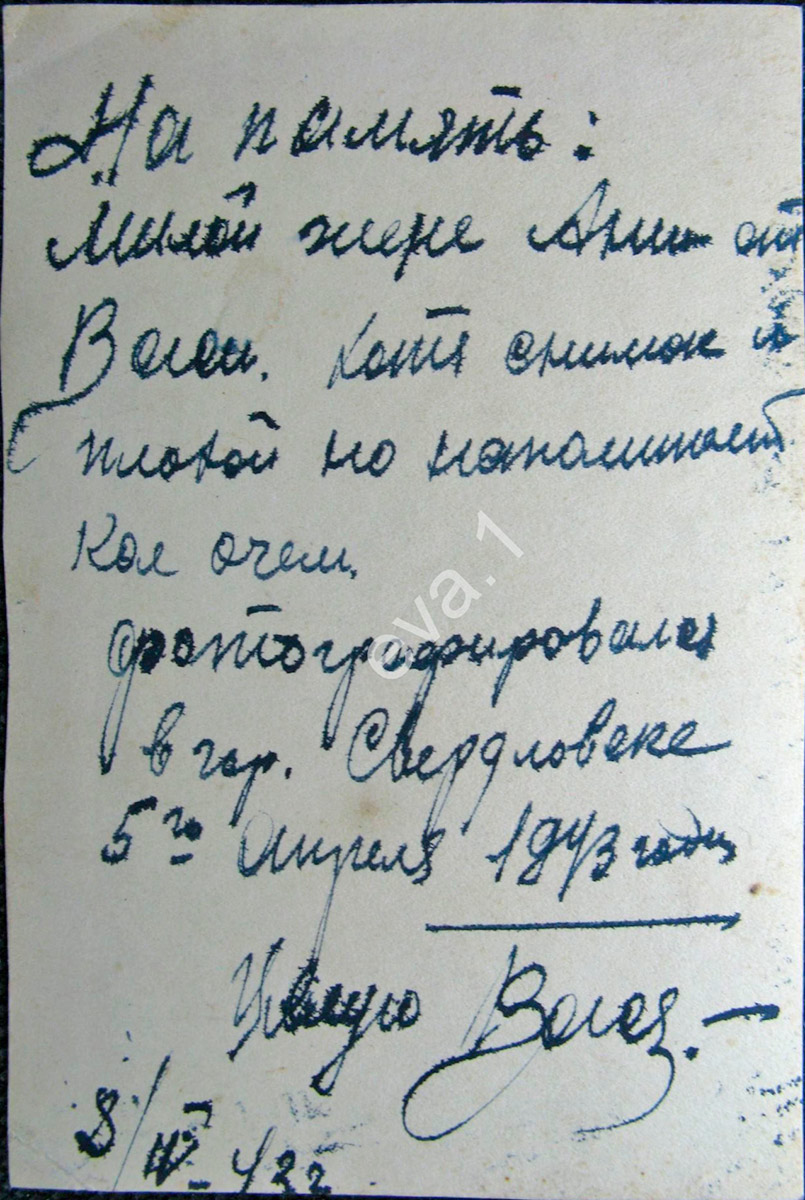 На память:
Милой жене Ани от
Васи. Хотя снимок и
плохой но напоминает
Кое очем.
фотографировался
в гор. Свердловске
5го Апреля 1943 года
Целую Вася.—
8/IV–43г
eva.1